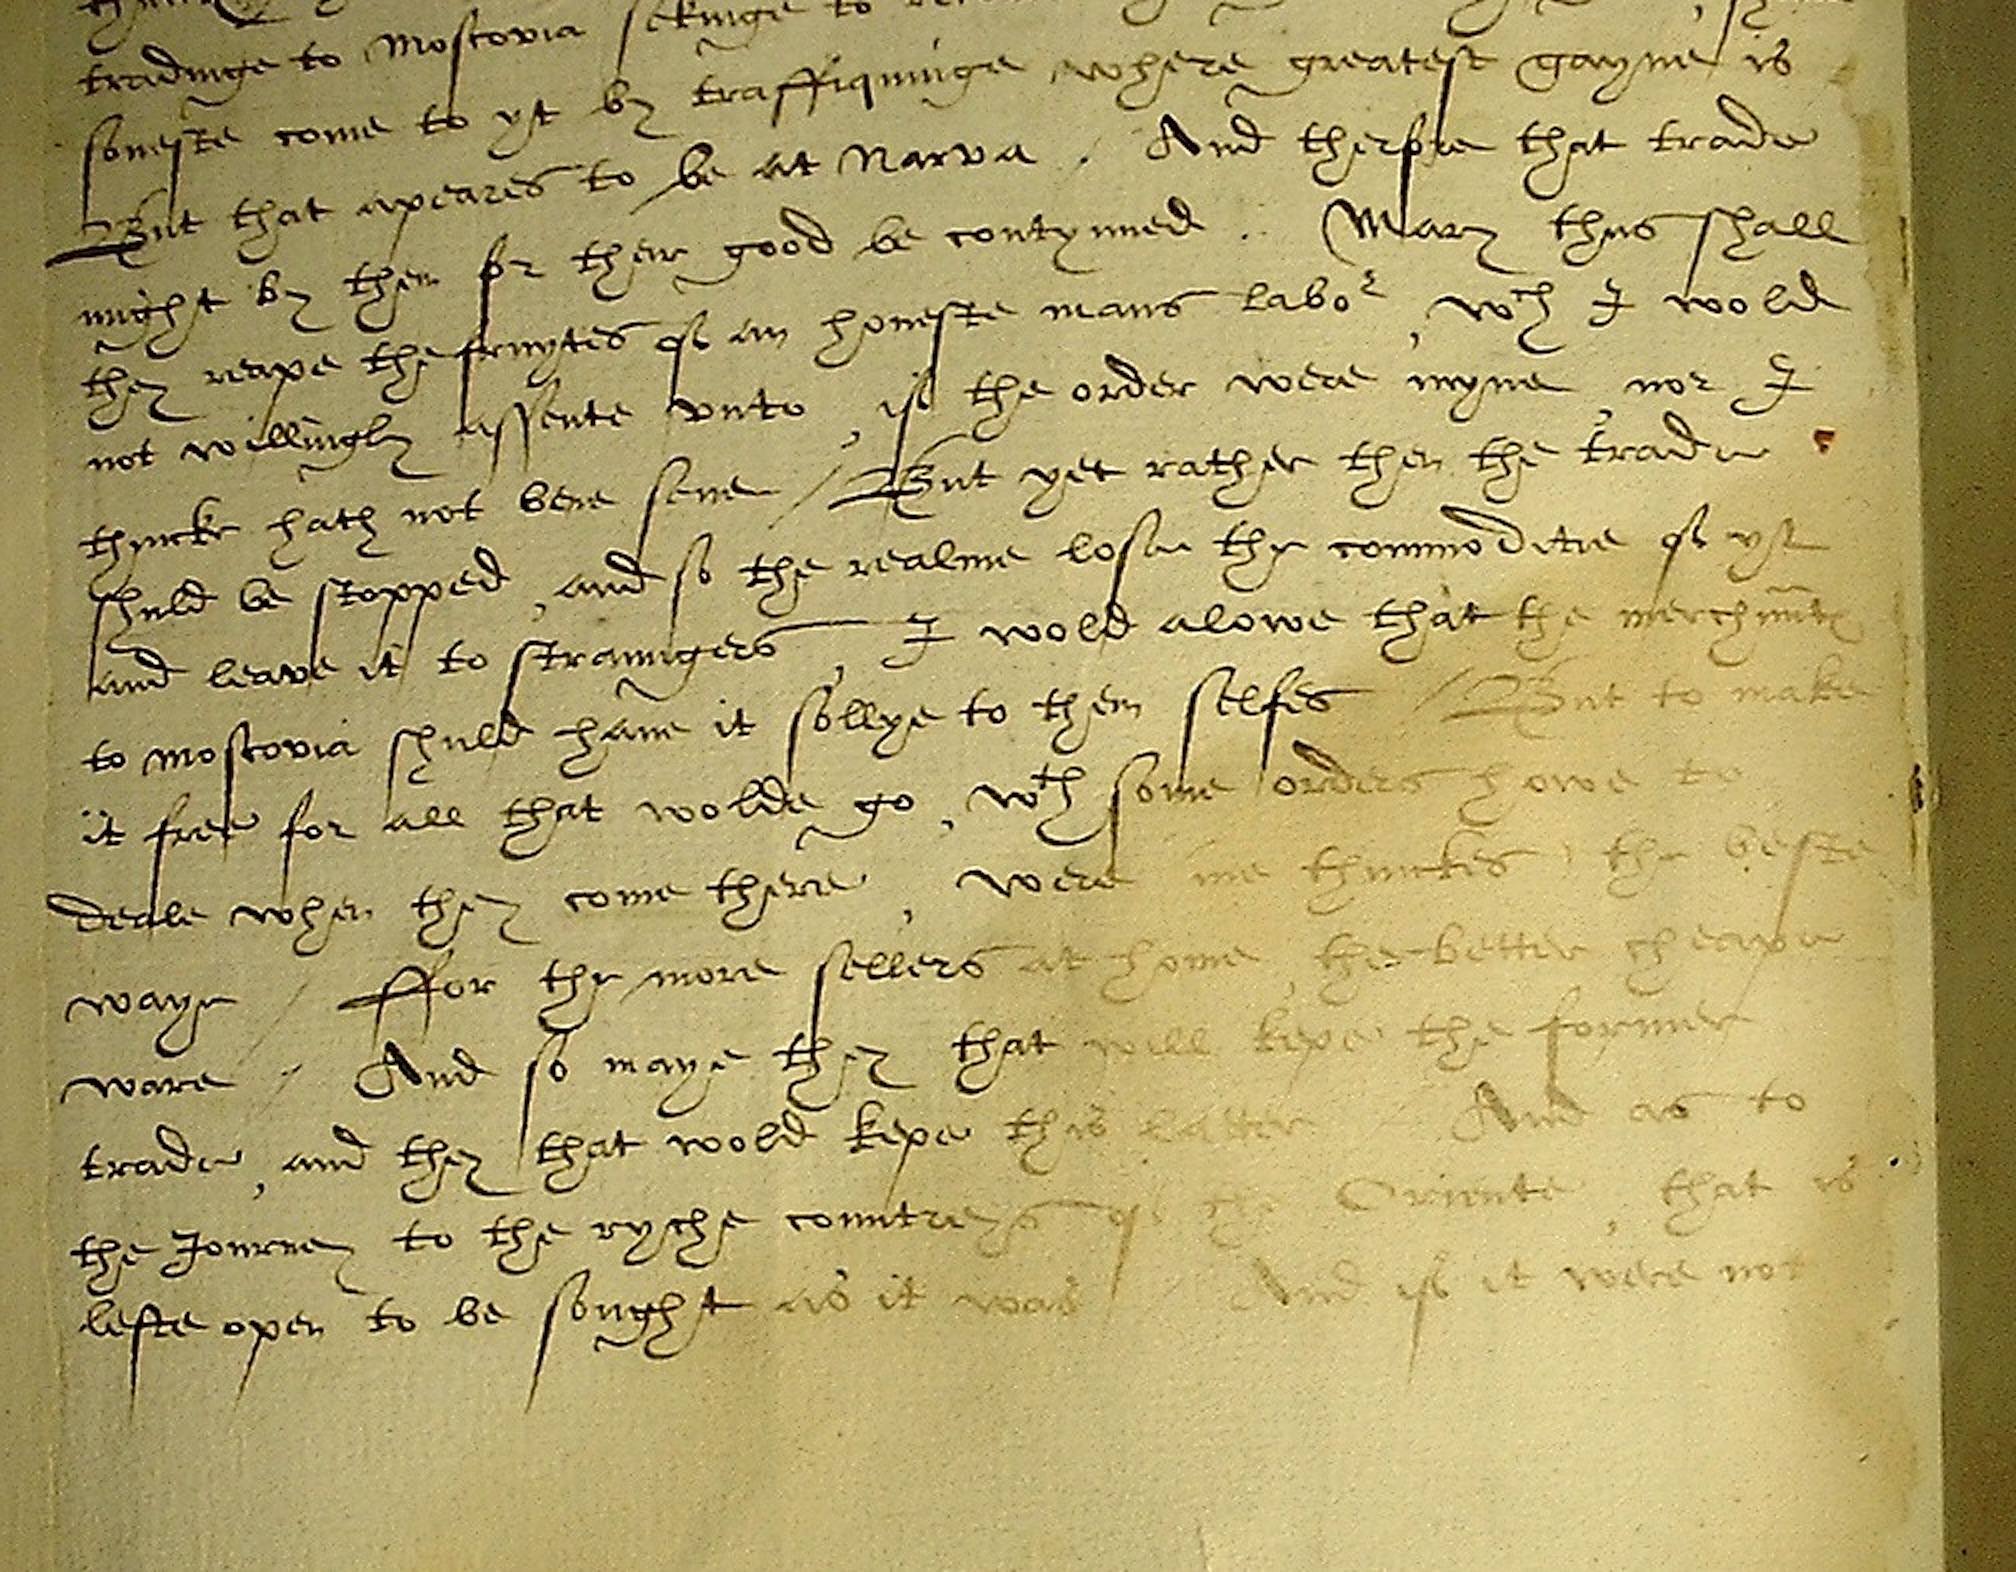 tradinge to Moscovia sekinge to
soneste come to yt by traffiquinge where greatest gayne is
But that apeares to be at Narva . And therfore that trade
might by them for their good be contynued . Mary thus shall
they reape the fruytes of an honeste mans labor , wch I wold
not willingly assente vnto , if the order were myne , nor I
thincke hath not bene sene / But yet rather then the trade
shuld be stopped , and so the realme lose the commoditie of yt
and leave it to straungers , I wold alowe that the merchuntes
to Moscovia shuld haue it sollye to them selfes / But to make
it free for all that wolde go , wth some orders howe to
deale when they come there , were me thinckes the beste
waye / ffor the more sellers at home , the better cheape
ware / And so maye they that will kepe the former
trade , and they that wold kepe this latter / And as to
the Journey to the ryche countreys of the Oriente , that is
lefte open to be sought as it was And if it were not